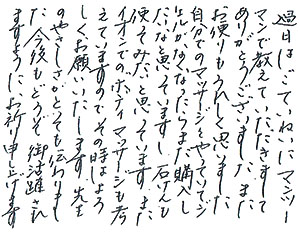 過日はていねいにマンツー
マンで教えていただきまして
ありがとうございました。また
お便りもうれしく思いました
自分でのマッサージをやっていてジ
ェルがなくなったらまた購入し
たいなと思っていますし石けんも
使ってみたいと思っています。また
イオンでのボディマッサージも考
えていますのでその時はよろ
しくお願いいたします。先生
のやさしさがとても伝わりまし
た。今後もどうぞ御活躍され
ますようにお祈り申し上げます